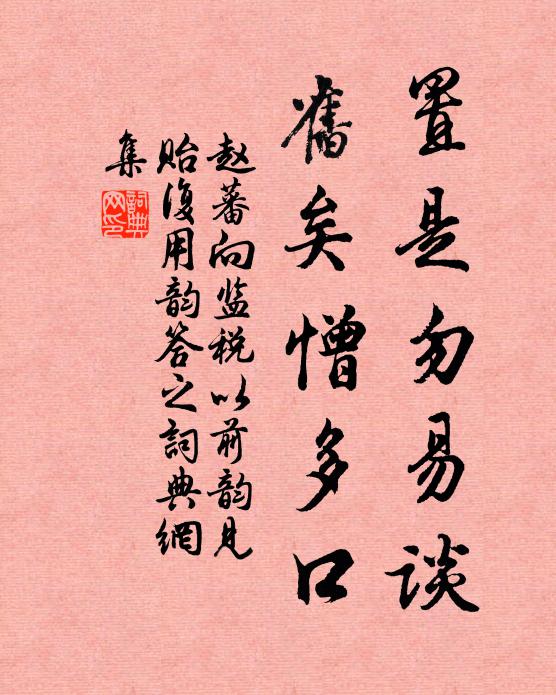 置是勿易谈
旧矣憎多口
赵蕃向监税以前韵见
贻復用韵答之词典網
集
詞典
网印